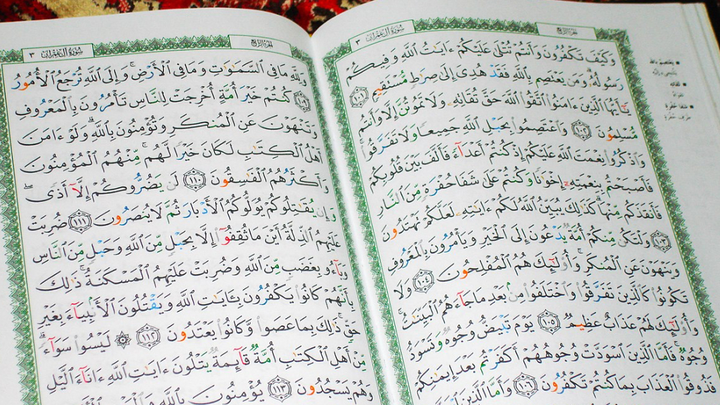 الجزء الرابع سورة آل عمران ٣
وَكَيْفَ تَكْفُرُونَ وَأَنتُمْ تُتْلَىٰ عَلَيْكُمْ ءَايَٰتُ ٱللَّهِ وَفِيكُمْ
رَسُولُهُۥ وَمَن يَعْتَصِم بِٱللَّهِ فَقَدْ هُدِىَ إِلَىٰ صِرَٰطٍ مُّسْتَقِيمٍ
١٠١ يَٰٓأَيُّهَا ٱلَّذِينَ ءَامَنُوا۟ ٱتَّقُوا۟ ٱللَّهَ حَقَّ تُقَاتِهِۦ وَلَا تَمُوتُنَّ إِلَّا وَأَنتُم
مُّسْلِمُونَ ١٠٢ وَٱعْتَصِمُوا۟ بِحَبْلِ ٱللَّهِ جَمِيعًا وَلَا تَفَرَّقُوا۟
وَٱذْكُرُوا۟ نِعْمَتَ ٱللَّهِ عَلَيْكُمْ إِذْ كُنتُمْ أَعْدَآءً فَأَلَّفَ بَيْنَ قُلُوبِكُمْ
فَأَصْبَحْتُم بِنِعْمَتِهِۦٓ إِخْوَٰنًا وَكُنتُمْ عَلَىٰ شَفَا حُفْرَةٍ مِّنَ ٱلنَّارِ
فَأَنقَذَكُم مِّنْهَا كَذَٰلِكَ يُبَيِّنُ ٱللَّهُ لَكُمْ ءَايَٰتِهِۦ لَعَلَّكُمْ تَهْتَدُونَ
١٠٣ وَلْتَكُن مِّنكُمْ أُمَّةٌ يَدْعُونَ إِلَى ٱلْخَيْرِ وَيَأْمُرُونَ بِٱلْمَعْرُوفِ
وَيَنْهَوْنَ عَنِ ٱلْمُنكَرِ وَأُو۟لَٰٓئِكَ هُمُ ٱلْمُفْلِحُونَ ١٠٤ وَلَا
تَكُونُوا۟ كَٱلَّذِينَ تَفَرَّقُوا۟ وَٱخْتَلَفُوا۟ مِنۢ بَعْدِ مَا جَآءَهُمُ ٱلْبَيِّنَٰتُ
وَأُو۟لَٰٓئِكَ لَهُمْ عَذَابٌ عَظِيمٌ ١٠٥ يَوْمَ تَبْيَضُّ وُجُوهٌ وَتَسْوَدُّ
وُجُوهٌ فَأَمَّا ٱلَّذِينَ ٱسْوَدَّتْ وُجُوهُهُمْ أَكَفَرْتُم بَعْدَ إِيمَٰنِكُمْ
فَذُوقُوا۟ ٱلْعَذَابَ بِمَا كُنتُمْ تَكْفُرُونَ ١٠٦ وَأَمَّا ٱلَّذِينَ
الجزء الرابع سورة آل عمران ٣
وَلِلَّهِ مَا فِى ٱلسَّمَٰوَٰتِ وَمَا فِى ٱلْأَرْضِ وَإِلَى ٱللَّهِ تُرْجَعُ ٱلْأُمُورُ
١٠٩ كُنتُمْ خَيْرَ أُمَّةٍ أُخْرِجَتْ لِلنَّاسِ تَأْمُرُونَ بِٱلْمَعْرُوفِ
وَتَنْهَوْنَ عَنِ ٱلْمُنكَرِ وَتُؤْمِنُونَ بِٱللَّهِ وَلَوْ ءَامَنَ
أَهْلُ ٱلْكِتَٰبِ لَكَانَ خَيْرًا لَّهُم مِّنْهُمُ ٱلْمُؤْمِنُونَ
وَأَكْثَرُهُمُ ٱلْفَٰسِقُونَ ١١٠ لَن يَضُرُّوكُمْ إِلَّآ أَذًى
وَإِن يُقَٰتِلُوكُمْ يُوَلُّوكُمُ ٱلْأَدْبَارَ ثُمَّ لَا يُنصَرُونَ ١١١ ضُرِبَتْ
عَلَيْهِمُ ٱلذِّلَّةُ أَيْنَ مَا ثُقِفُوٓا۟ إِلَّا بِحَبْلٍ مِّنَ ٱللَّهِ وَحَبْلٍ مِّنَ ٱلنَّاسِ
وَبَآءُو بِغَضَبٍ مِّنَ ٱللَّهِ وَضُرِبَتْ عَلَيْهِمُ ٱلْمَسْكَنَةُ ذَٰلِكَ
بِأَنَّهُمْ كَانُوا۟ يَكْفُرُونَ بِـَٔايَٰتِ ٱللَّهِ وَيَقْتُلُونَ ٱلْأَنۢبِيَآءَ بِغَيْرِ
حَقٍّ ذَٰلِكَ بِمَا عَصَوا۟ وَّكَانُوا۟ يَعْتَدُونَ ١١٢ لَيْسُوا۟ سَوَآءً
مِّنْ أَهْلِ ٱلْكِتَٰبِ أُمَّةٌ قَآئِمَةٌ يَتْلُونَ ءَايَٰتِ ٱللَّهِ ءَانَآءَ ٱلَّيْلِ
وَهُمْ يَسْجُدُونَ ١١٣ يُؤْمِنُونَ بِٱللَّهِ وَٱلْيَوْمِ